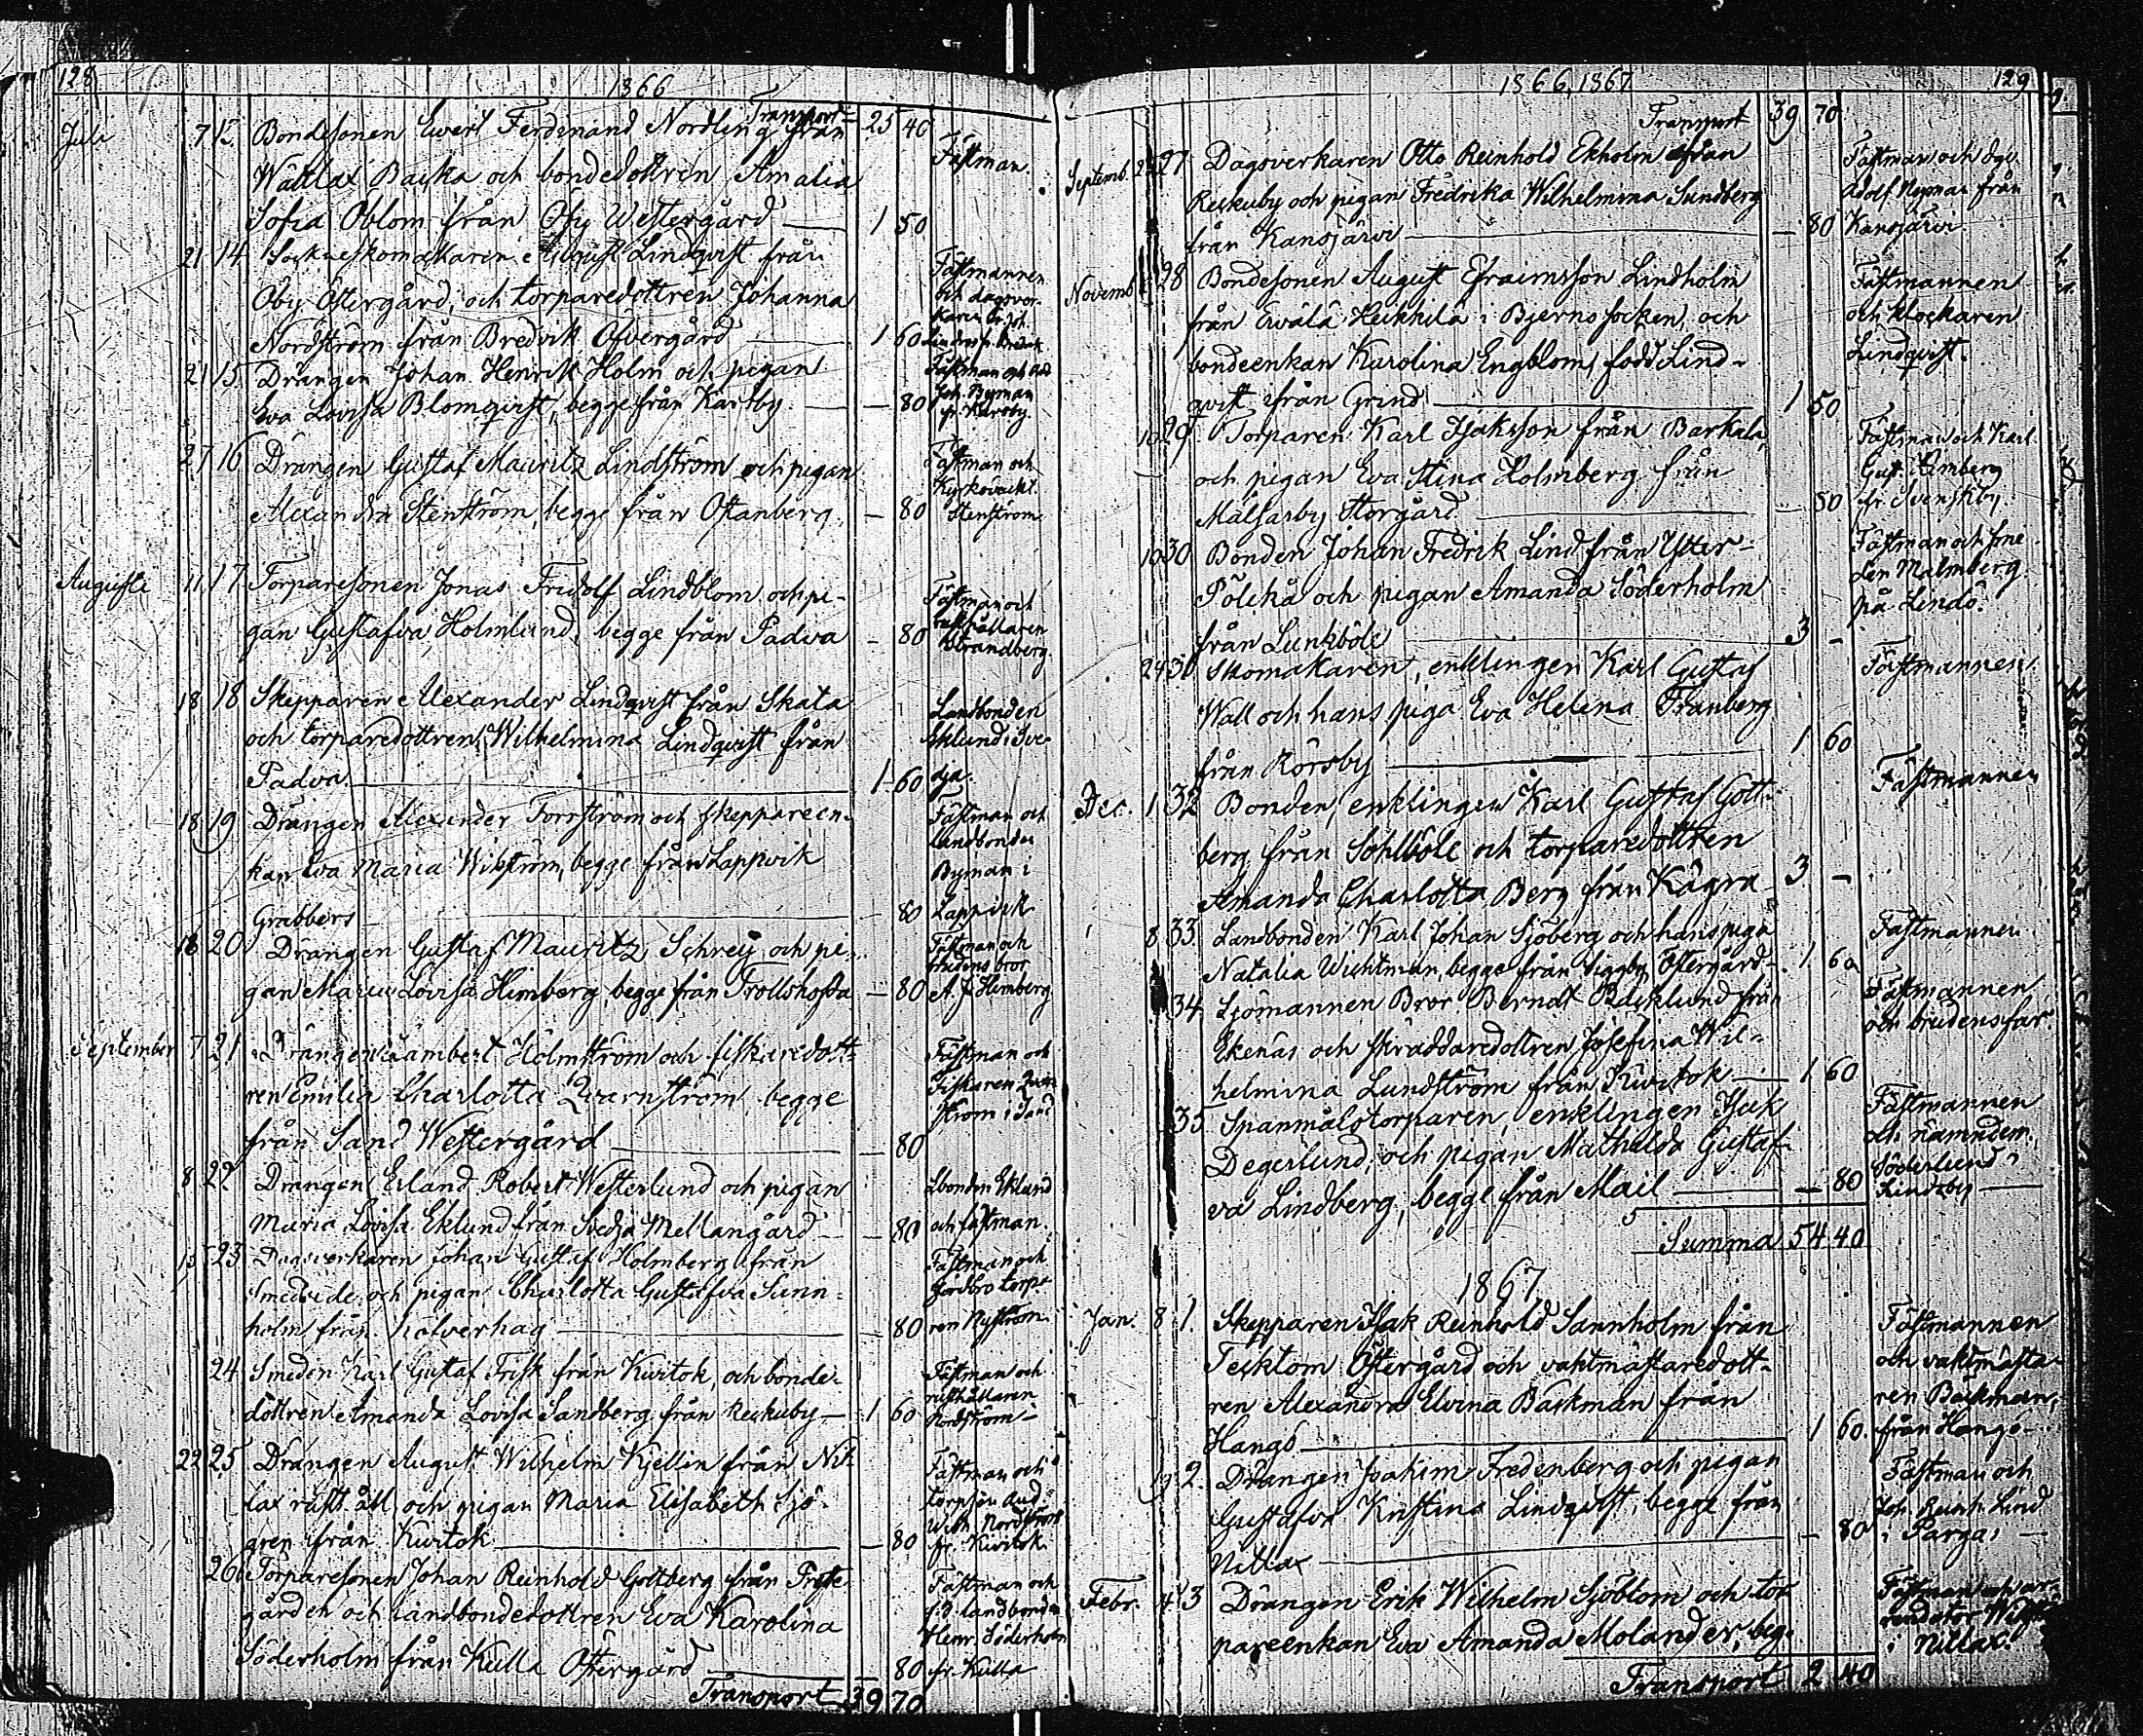 128 1866
Transport 25 40
Juli 7 13. Bondesonen Ewert Ferdinand Nordling från
Wättlax Backa och bondedottren Amalia Fästman.
Sofia Oblom från Öby Westergård — 1 50
21 14 Sockneskomakaren August Lindqvist från Fästmannen
Öby Östergård, och torparedottren Johanna och dagsver-
Nordström från Bredvik Öfvergård — 1 60
21 15 Drängen Johan Henrik Holm och pigan Fästman och
Eva Lovisa Blomqvist, begge från Karsby. — 80 Joh. Byman fr. Karsby.
27 16 Drängen Gustaf Mauritz Lindström och pigan Fästman och
Kyrkovackt.
Alexandra Stenström, begge från Ostanberg. — 80 Stenström
Augusti 11 17 Torparesonen Jonas Fridolf Lindblom och pi- Fästman och
gan Gustafva Holmlund, begge från Padva — 80 rusthållaren
Strandberg.
18 18 Skepparen Alexander Lindqvist från Skata Landbonden
och torparedottren Wilhelmina Lindqvist från Eklund i Sve-
Padva. — 1 60 dja.
18 19 Drängen Alexander Forsström och skeppareen- Fästman och
landbonden
kan Eva Maria Wikström, begge från Lappvik Byman i
Grabbers — 80 Lappvik
18 20 Drängen Gustaf Mauritz Schrey och pi- Fästman och
brudens bror
gan Maria Lovisa Himberg, begge från Trollshofda — 80 A. F. Himberg
September 7 21 Drängen Lambert Holmström och fiskaredott- Fästman och
ren Emilia Charlotta Qvarnström, begge Fiskaren Qvarn-
ström i Sand
från Sand Westergård — 80
8 22 Drängen Erland Robert Westerlund och pigan Lbonden Eklund
Maria Lovisa Eklund från Svedja Mellangård — 80 och fästman.
15 23 Dagsverkaren Johan Gustaf Holmberg från Fästman och
Smedsede och pigan Charlotta Gustafva Sann- torpa-
holm från Kalverhag — 80 ren Nyström.
24 Smeden Karl Gustaf Frisk från Kivitok, och bonde- Fästman och
rusthållaren
dottren Amanda Lovisa Sandberg från Reskuby — 1 60 Nordström —
22 25 Drängen August Wilhelm Kjellin från Nit- Fästman och
lax rusth åll, och pigan Maria Elisabeth Sjö-
Wilh. Nordström
gren från Kivitok — 80 fr. Kivitok.
26 Torparesonen Johan Reinhold Gottberg från Fröje- Fästman och
gården och landbondedottren Eva Karolina f.d. landbonden
Henr. Söderholm
Söderholm från Kulla Östergård — 80 fr. Kulla
Transport 39 70
1866, 1867 129
Transport 39 70
Septemb. 22 27 Dagsverkaren Otto Reinhold Ekholm från Fästman och
Reskuby och pigan Fredrika Wilhelmina Sundberg Adolf Nyman från
från Kansjärvi — 80 Kansjärvi.
Novemb. 28 Bondesonen August Efraimsson Lindholm Fästmannen
från Ewälä Heikkilä i Bjerno socken, och och klockaren
bondeenkan Karolina Engblom, född Lind- Lindqvist.
qvist från Grind — 1 50
10 29 Torparen Karl Isaksson från Barkala Fästman och Karl
och pigan Eva Stina Holmberg från Gust. Himberg
Målsarby Storgård — 50 fr. Svenskby.
10 30 Bonden Johan Fredrik Lind från Ytter- Fästman och sme-
Pölckå och pigan Amanda Söderholm den Malmberg
från Lunkböle — 3 — på Lindö.
24 30 Skomakaren, enklingen Karl Gustaf Fästmannen.
Wall och hans piga Eva Helena Tranberg
från Rörsby — 1 60
Dec. 1 32 Bonden, enklingen Karl Gustaf Gott- Fästmannen
berg från Sohlböle och torparedottren
Amanda Charlotta Berg från Kågra 3 —
8 33 Landbonden Karl Johan Sjöberg och hans piga Fästmannen
Natalia Wichtman, begge från Siggby Östergård. 1 60
34 Sjömannen Bror Berndt Bäcklund från Fästmannen
och brudens far.
Ekenäs och skräddaredottren Josefina Wil-
helmina Lundström från Kivitok — 1 60
35 Spanmålstorparen, enklingen Isak Fästmannen
Degerlund, och pigan Mathilda Gustaf- och nämndem.
Söderlund i
va Lindberg, begge från Mail — 80 Lindsby —
Summa 54 40
1867
Jan. 8 1. Skepparen Isak Reinhold Sannholm från Fästmannen
Tecktom Östergård och vaktmästaredott- och vaktmästa-
ren Alexandra Elvina Bäckman från ren Bäckman,
Hangö — 1 60. från Hangö —
19 2. Drängen Joakim Fredenberg och pigan Fästman och
Gustafva Kristina Lindqvist, begge från Joh. Reinh. Lind
Nitlax — 80 i Pargas —
Febr. 4 3 Drängen Erik Wilhelm Sjöblom och tor- Fästman och ar-
rendator
pareenkan Eva Amanda Molander, beg- i Nitlax.
Transport 2 40